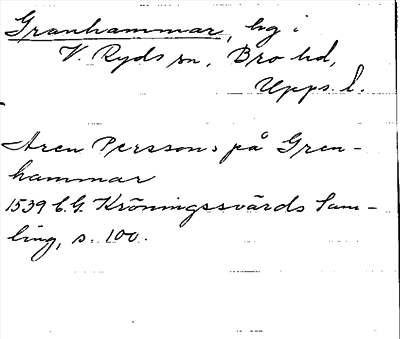 Granhammar, hg i
V. Ryds sn, Bro hd,
Upps. l.
Aren Perssons på Gren-
hammar
1539 C.G. Kröningssvärds Sam-
ling, s. 100.